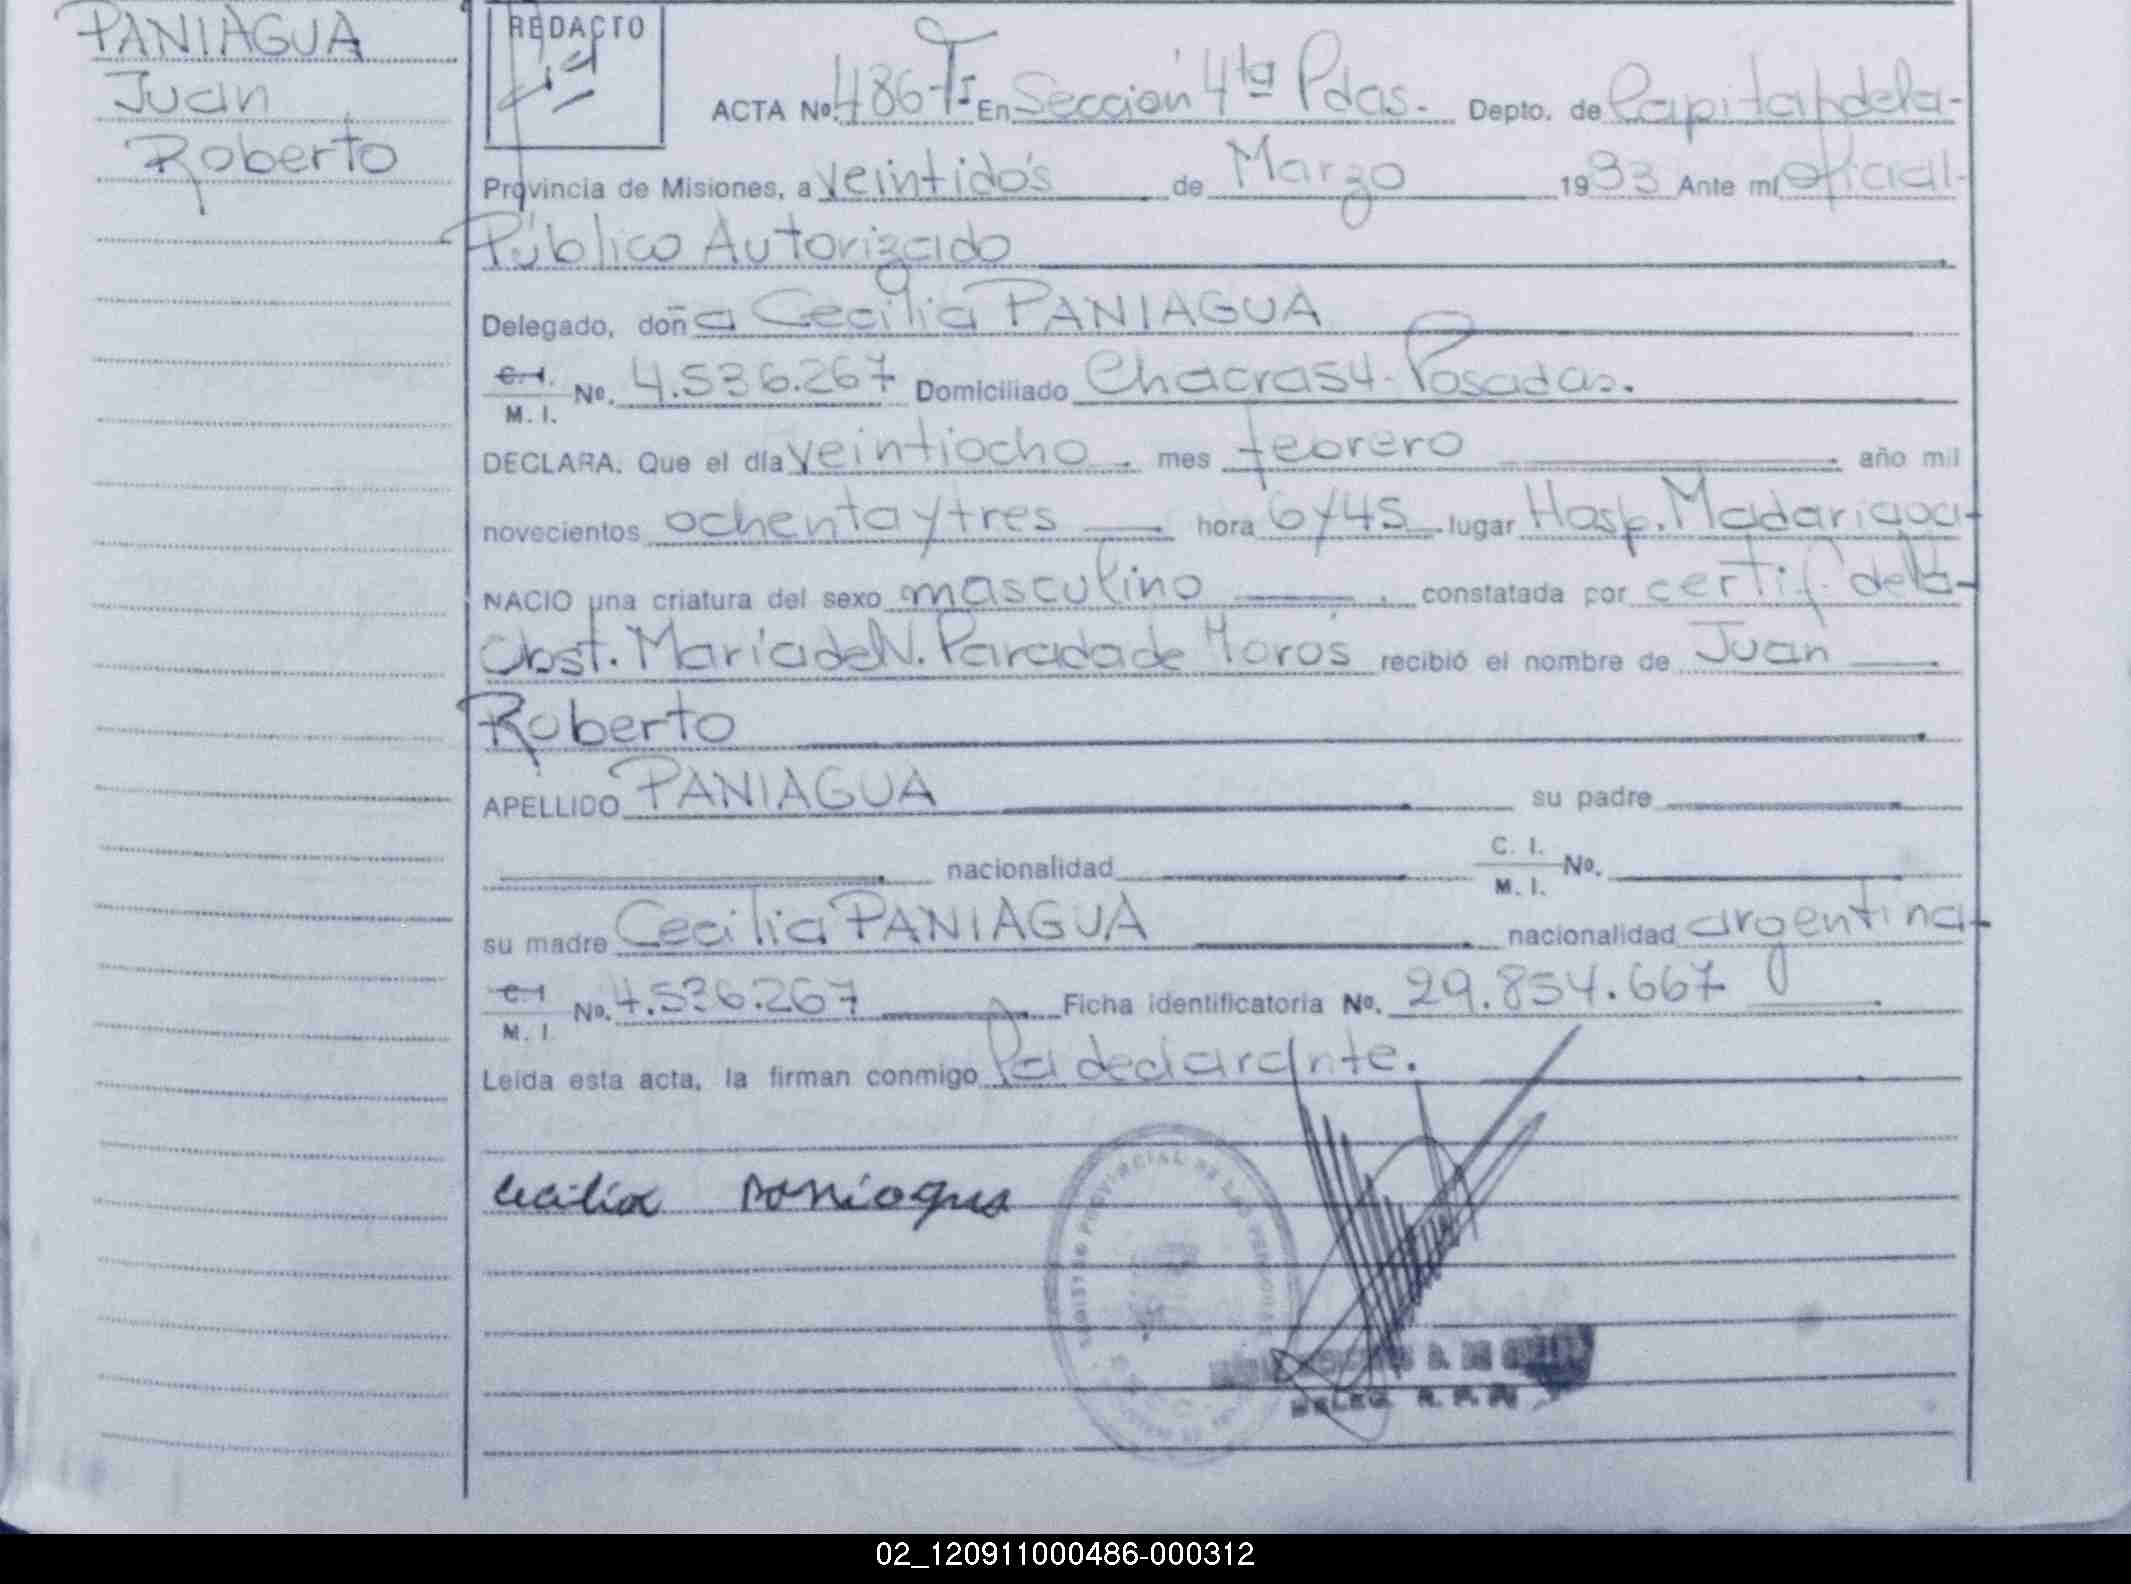 PANIAGUA
Juan
Roberto
REDACTO
ACTA Nº. 486-Tº I En Sección 4ta Pdas. Depto. de Capital de la-
Provincia de Misiones, a veintidós de Marzo 1983 Ante mí oficial-
Público Autorizado
Delegado, doña Cecilia PANIAGUA
C.I. M.I. Nº. 4.536.267 Domiciliado Chacra 54-Posadas.
DECLARA. Que el día veintiocho. mes febrero año mil
novecientos ochenta y tres hora 6 y 45 lugar Hosp. Madariaga-
NACIO una criatura del sexo masculino constatada por certif de la-
Obst. María del N. Parada de Moros recibió el nombre de Juan
Roberto
APELLIDO PANIAGUA su padre
nacionalidad C. I. M. I. Nº.
su madre Cecilia PANIAGUA nacionalidad argentina-
C.I. M. I. Nº. 4.536.267 Ficha identificatoria Nº. 29.854.667
Leída esta acta, la firman conmigo la declarante.
Cecilia Paniagua
REGISTRO PROVINCIAL DE LAS PERSONAS
02_120911000486-000312